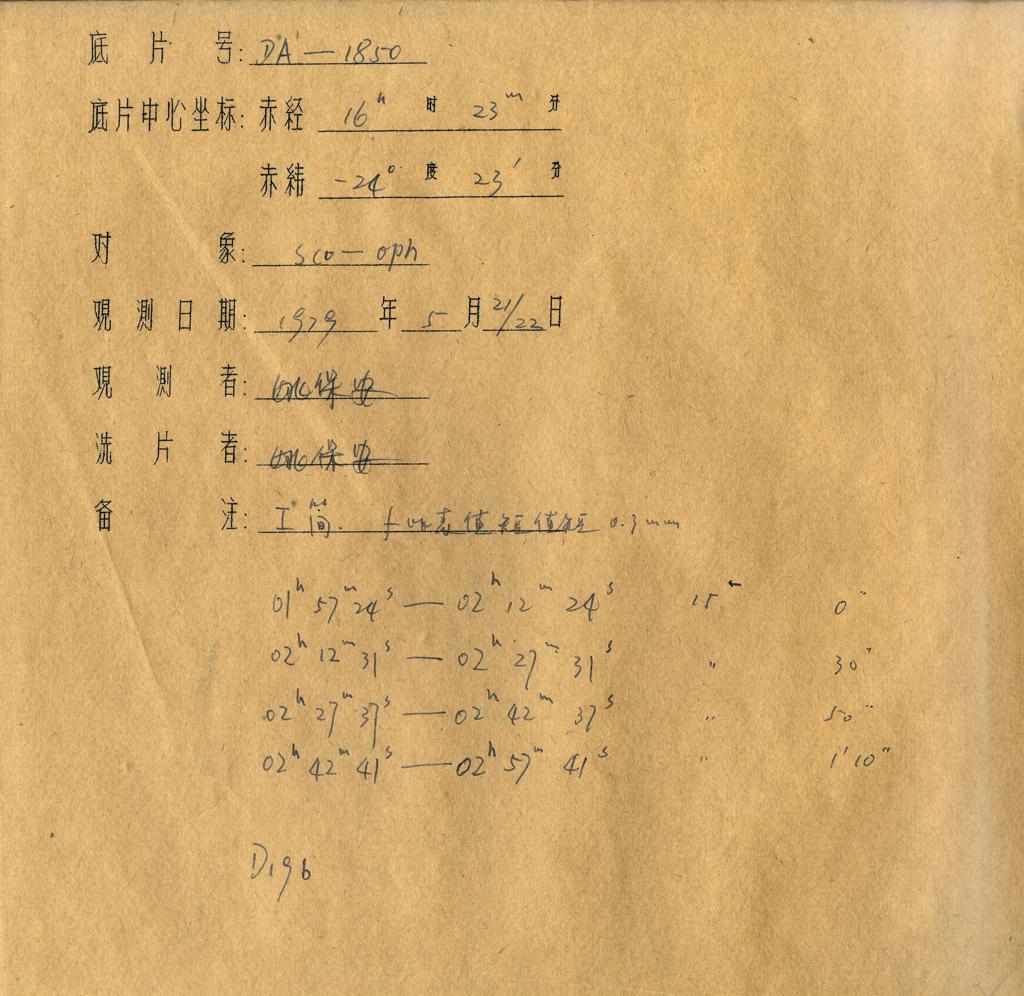 底片号: DA—1850
底片中心坐标: 赤经 16ʰ 时 23ᵐ 分
赤纬 -24° 度 23′ 分
对象: sco—oph
观测日期: 1979 年 5 月 21/22 日
观测者: 姚保安
洗片者: 姚保安
备注: 表值短 0.3mm
01ʰ 57ᵐ 24ˢ — 02ʰ 12ᵐ 24ˢ 15ᵐ 0″
02ʰ 12ᵐ 31ˢ — 02ʰ 27ᵐ 31ˢ " 30″
02ʰ 27ᵐ 37ˢ — 02ʰ 42ᵐ 37ˢ " 50″
02ʰ 42ᵐ 41ˢ — 02ʰ 57ᵐ 41ˢ " 1′10″
D196